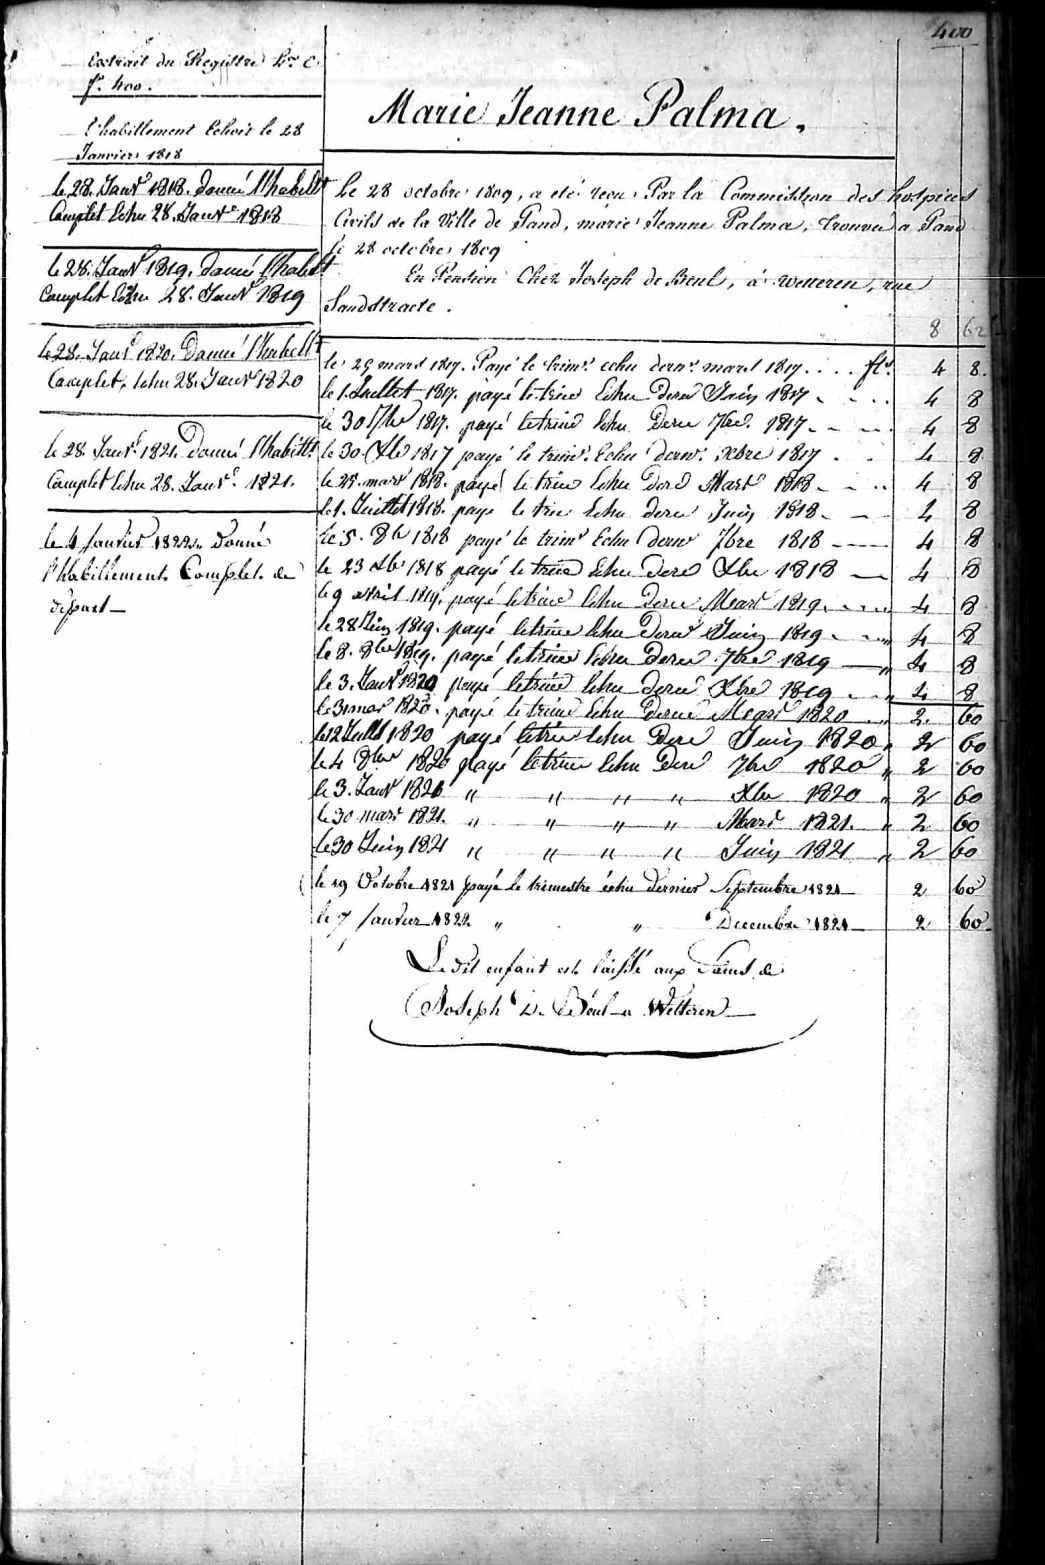 400
Extrait du Registre Lre C.
f° 400.
L'habillement Echoit le 28
Janvier 1818
le 28. Janvr 1818. donné l'habillt
Complet Echu 28. Janvr 1818
le 28. Janvr 1819. donné l'habillt
Complet Echu 28. Janvr 1819
le 28. Janvr 1820. Donné l'habillt
Complet, Echu 28. Janvr 1820
le 28 Janvr 1821. Donné l'habillt
Complet Echu 28. Janvr 1821.
le 4 Janvier 1822. Donné
l'Habillement Complet de
départ —
Marie Jeanne Palma.
Le 28 octobre 1809, a eté reçu Par la Commission des hospices
Civils de la Ville de Gand, marie Jeanne Palma, trouvée a Gand
le 28 octobre 1809
En Pension Chez Joseph de Beul, á Wetteren, rue
Sandstraete.
8 62
le 29 mars 1817. Payé le trimr. echu dernr. mars 1817 . . . . fls. 4 8.
le 1. Juillet 1817. payé le trim Echu dern Juin 1817 - - - 4 8
le 30 7bre 1817. payé le trim Echu Dern 7bre. 1817 - - - 4 8
le 30 Xbre 1817 payé le trimr. Echu dernr. Xbre 1817 . . 4 8
le 28. mars 1818. payé le trim Echu Dern Mars 1818 - - - 4 8
le 1. Juillet 1818. payé le trim Echu dern Juin 1818 - - - 4 8
Le 5. 8bre 1818 payé le trimr Echu dernr 7bre 1818 — 4 8
le 23 Xbre 1818 payé le trim Echu Dern Xbre 1818 — 4 8
le 9 avril 1819. payé le trim Echu dern Mars 1819. - - - 4 8
le 28 Juin 1819. payé le trim Echu Dern Juin 1819 - - - 4 8
le 8. 8bre 1819. payé le trim Echu Dern 7bre 1819 — „ 4 8
le 3. Janvr 1820 payé le trim Echu dern Xbre 1819 - - „ 4 8
le 31 mars 1820. payé le trim Echu Dern Mars 1820 „ 2. 60
le 12 Juillt 1820 payé le trim Echu Dern Juin 1820 „ 2 60
le 4 8bre 1820 payé le trim Echu Dern 7bre 1820 „ 2 60
le 3. Janvr 1821 „ „ „ „ Xbre 1820 „ 2 60
le 30 mars 1821. „ „ „ „ Mars 1821. „ 2 60
le 30 Juin 1821 „ „ „ „ Juin 1821 „ 2 60
le 19 Octobre 1821 payé le trimestre échu dernier Septembre 1821 — 2 60
le 7 Janvier 1822 „ „ Decembre 1821 — 2 60
Le dit enfant est laissé aux Soins de
Joseph De Beul a Wetteren —